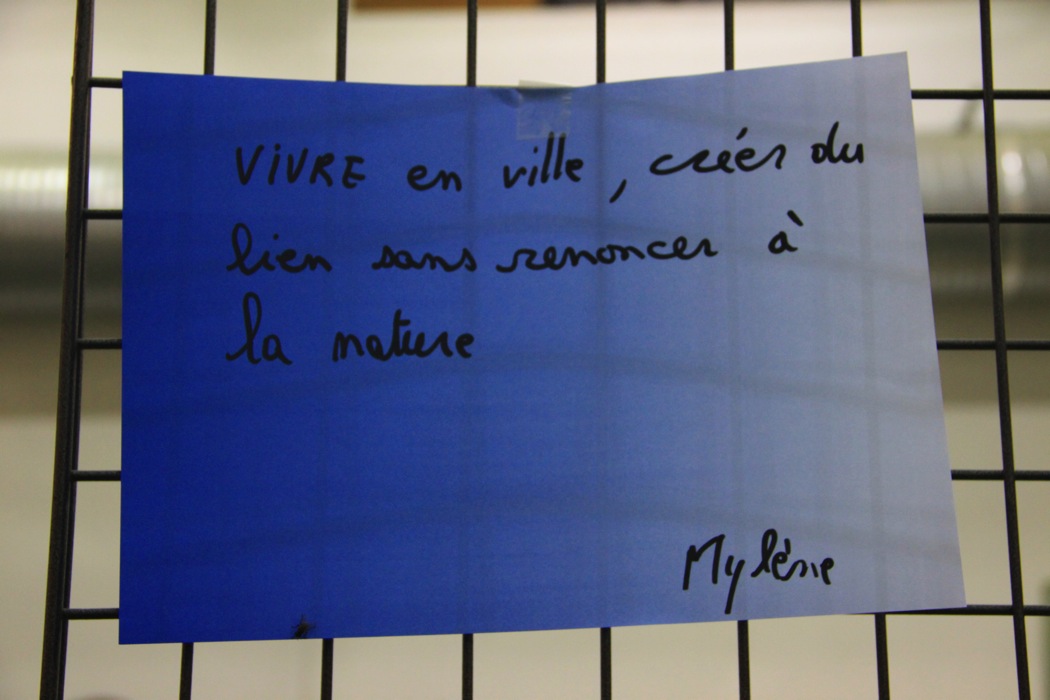 VIVRE en ville, créer du
lien sans renoncer à
la nature
Mylène